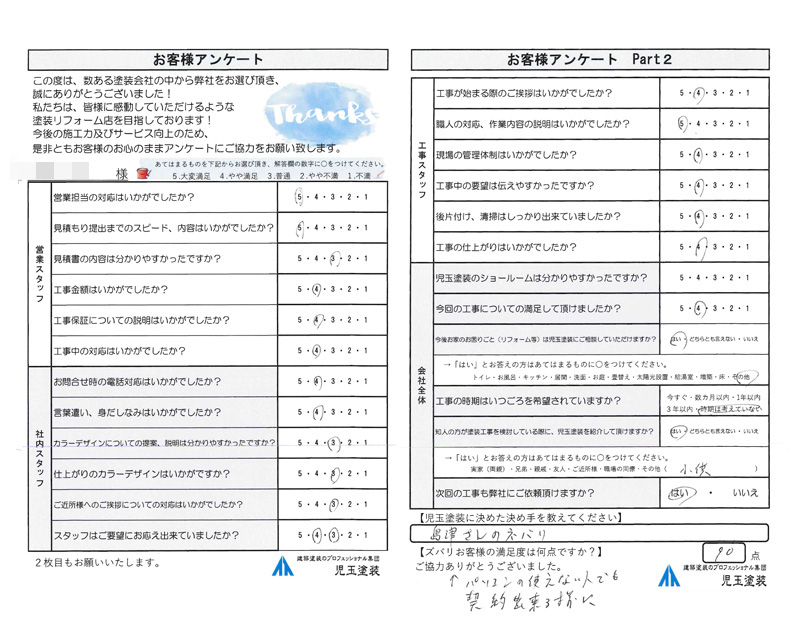 お客様アンケート
この度は、数ある塗装会社の中から弊社をお選び頂き、
誠にありがとうございました！
私たちは、皆様に感動していただけるような
塗装リフォーム店を目指しております！
今後の施工力及びサービス向上のため、
是非ともお客様のお心のままアンケートにご協力をお願い致します。
Thanks
様
あてはまるものを下記からお選び頂き、解答欄の数字に○をつけてください。
5.大変満足 4.やや満足 3.普通 2.やや不満 1.不満
営業スタッフ
営業担当の対応はいかがでしたか？ 5・4・3・2・1
見積もり提出までのスピード、内容はいかがでしたか？ 5・4・3・2・1
見積書の内容は分かりやすかったですか？ 5・4・3・2・1
工事金額はいかがでしたか？ 5・4・3・2・1
工事保証についての説明はいかがでしたか？ 5・4・3・2・1
工事中の対応はいかがでしたか？ 5・4・3・2・1
社内スタッフ
お問合せ時の電話対応はいかがでしたか？ 5・4・3・2・1
言葉遣い、身だしなみはいかがでしたか？ 5・4・3・2・1
カラーデザインについての提案、説明は分かりやすかったですか？ 5・4・3・2・1
仕上がりのカラーデザインはいかがですか？ 5・4・3・2・1
ご近所様へのご挨拶についての対応はいかがでしたか？ 5・4・3・2・1
スタッフはご要望にお応え出来ていましたか？ 5・4・3・2・1
2枚目もお願いいたします。
建築塗装のプロフェッショナル集団
児玉塗装
お客様アンケート Part２
工事スタッフ
工事が始まる際のご挨拶はいかがでしたか？ 5・4・3・2・1
職人の対応、作業内容の説明はいかがでしたか？ 5・4・3・2・1
現場の管理体制はいかがでしたか？ 5・4・3・2・1
工事中の要望は伝えやすかったですか？ 5・4・3・2・1
後片付け、清掃はしっかり出来ていましたか？ 5・4・3・2・1
工事の仕上がりはいかがでしたか？ 5・4・3・2・1
会社全体
児玉塗装のショールームは分かりやすかったですか？ 5・4・3・2・1
今回の工事についての満足して頂けましたか？ 5・4・3・2・1
今後お家のお困りごと（リフォーム等）は児玉塗装にご相談していただけますか？ はい・どちらとも言えない・いいえ
→「はい」とお答えの方はあてはまるものに○をつけてください。
トイレ・お風呂・キッチン・居間・洗面・お庭・畳替え・太陽光設置・給湯室・増築・床・その他
工事の時期はいつごろを希望されていますか？ 今すぐ・数カ月以内・1年以内
3年以内・時期は考えていない
知人の方が塗装工事を検討している際に、児玉塗装を紹介して頂けますか？ はい・どちらとも言えない・いいえ
→「はい」とお答えの方はあてはまるものに○をつけてください。
実家（両親）・兄弟・親戚・友人・ご近所様・職場の同僚・その他（ ）
次回の工事も弊社にご依頼頂けますか？ はい ・ いいえ
【児玉塗装に決めた決め手を教えてください】
島津さんのネバリ
【ズバリお客様の満足度は何点ですか？】 90 点
ご協力ありがとうございました。
↑パソコンの使えない人でも
契約出来る様に
建築塗装のプロフェッショナル集団
児玉塗装